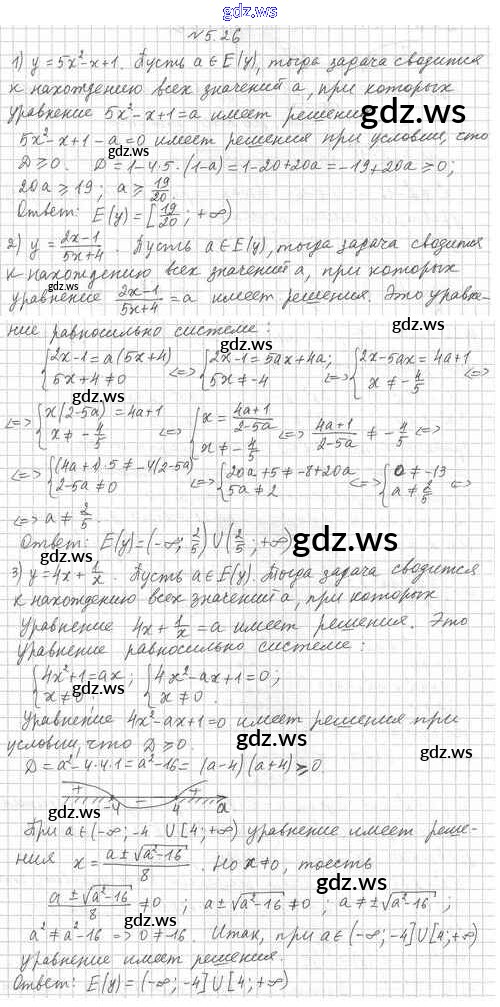 gdz.ws
№5.26
1) y = 5x²-x+1. Пусть a∈E(y), тогда задача сводится
к нахождению всех значений a, при которых
уравнение 5x²-x+1=a имеет решения.
gdz.ws
5x²-x+1-a=0 имеет решения при условии, что
gdz.ws
D≥0. D=1-4·5·(1-a)=1-20+20a=-19+20a≥0;
20a≥19; a≥19/20
Ответ: E(y)=[19/20; +∞)
gdz.ws
2) y = (2x-1)/(5x+4). Пусть a∈E(y), тогда задача сводится
к нахождению всех значений a, при которых
уравнение (2x-1)/(5x+4) = a имеет решения. Это уравне-
gdz.ws
ние равносильно системе:
{2x-1=a(5x+4) <=> {2x-1=5ax+4a; <=> {2x-5ax=4a+1
{5x+4≠0 {5x≠-4 {x≠-4/5
gdz.ws gdz.ws
<=> {x(2-5a)=4a+1 <=> {x=(4a+1)/(2-5a) <=> (4a+1)/(2-5a) ≠ -4/5 <=>
{x≠-4/5 {x≠-4/5
<=> {(4a+1)·5≠-4(2-5a) <=> {20a+5≠-8+20a <=> {0≠-13 <=>
{2-5a≠0 {5a≠2 {a≠2/5
gdz.ws
<=> a≠2/5.
Ответ: E(y)=(-∞; 2/5)∪(2/5; +∞)
gdz.ws
3) y=4x+1/x. Пусть a∈E(y). Тогда задача сводится
к нахождению всех значений a, при которых
gdz.ws
уравнение 4x+1/x=a имеет решения. Это
уравнение равносильно системе:
{4x²+1=ax; {4x²-ax+1=0;
{x≠0; {x≠0.
gdz.ws
Уравнение 4x²-ax+1=0 имеет решения при
gdz.ws
условии, что D≥0.
gdz.ws
D=a²-4·4·1=a²-16=(a-4)(a+4)≥0.
+ -4 - 4 + a
gdz.ws
При a∈(-∞; -4∪[4; +∞) уравнение имеет реше-
ния x=(a±√(a²-16))/8. Но x≠0, тоесть
gdz.ws
(a±√(a²-16))/8≠0; a±√(a²-16)≠0; a≠±√(a²-16);
a²≠a²-16 => 0≠-16. Итак, при a∈(-∞; -4]∪[4; +∞)
gdz.ws
уравнение имеет решения.
gdz.ws
Ответ: E(y)=(-∞; -4]∪[4; +∞)